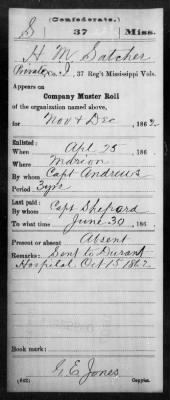 (Confederate.)
S 37 Miss.
H M Satcher
Private, Co. I, 37 Reg't Mississippi Vols.
Appears on
Company Muster Roll
of the organization named above,
for Nov & Dec, 1862
Enlisted:
When Apl 25, 186
Where Marion
By whom Capt Andrews
Period 3 yrs
Last paid:
By whom Capt Shepard
To what time June 30, 186
Present or absent Absent
Remarks: Sent to Durant
Hospital Oct 15 1862
Book mark:
G. E. Jones
(642) Copyist.